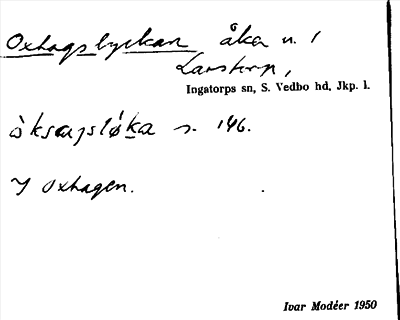 Oxhagslyckan åker n. 1
Larstorp,
Ingatorps sn, S. Vedbo hd, Jkp. l.
s. 146.
I Oxhagen.
Ivar Modéer 1950